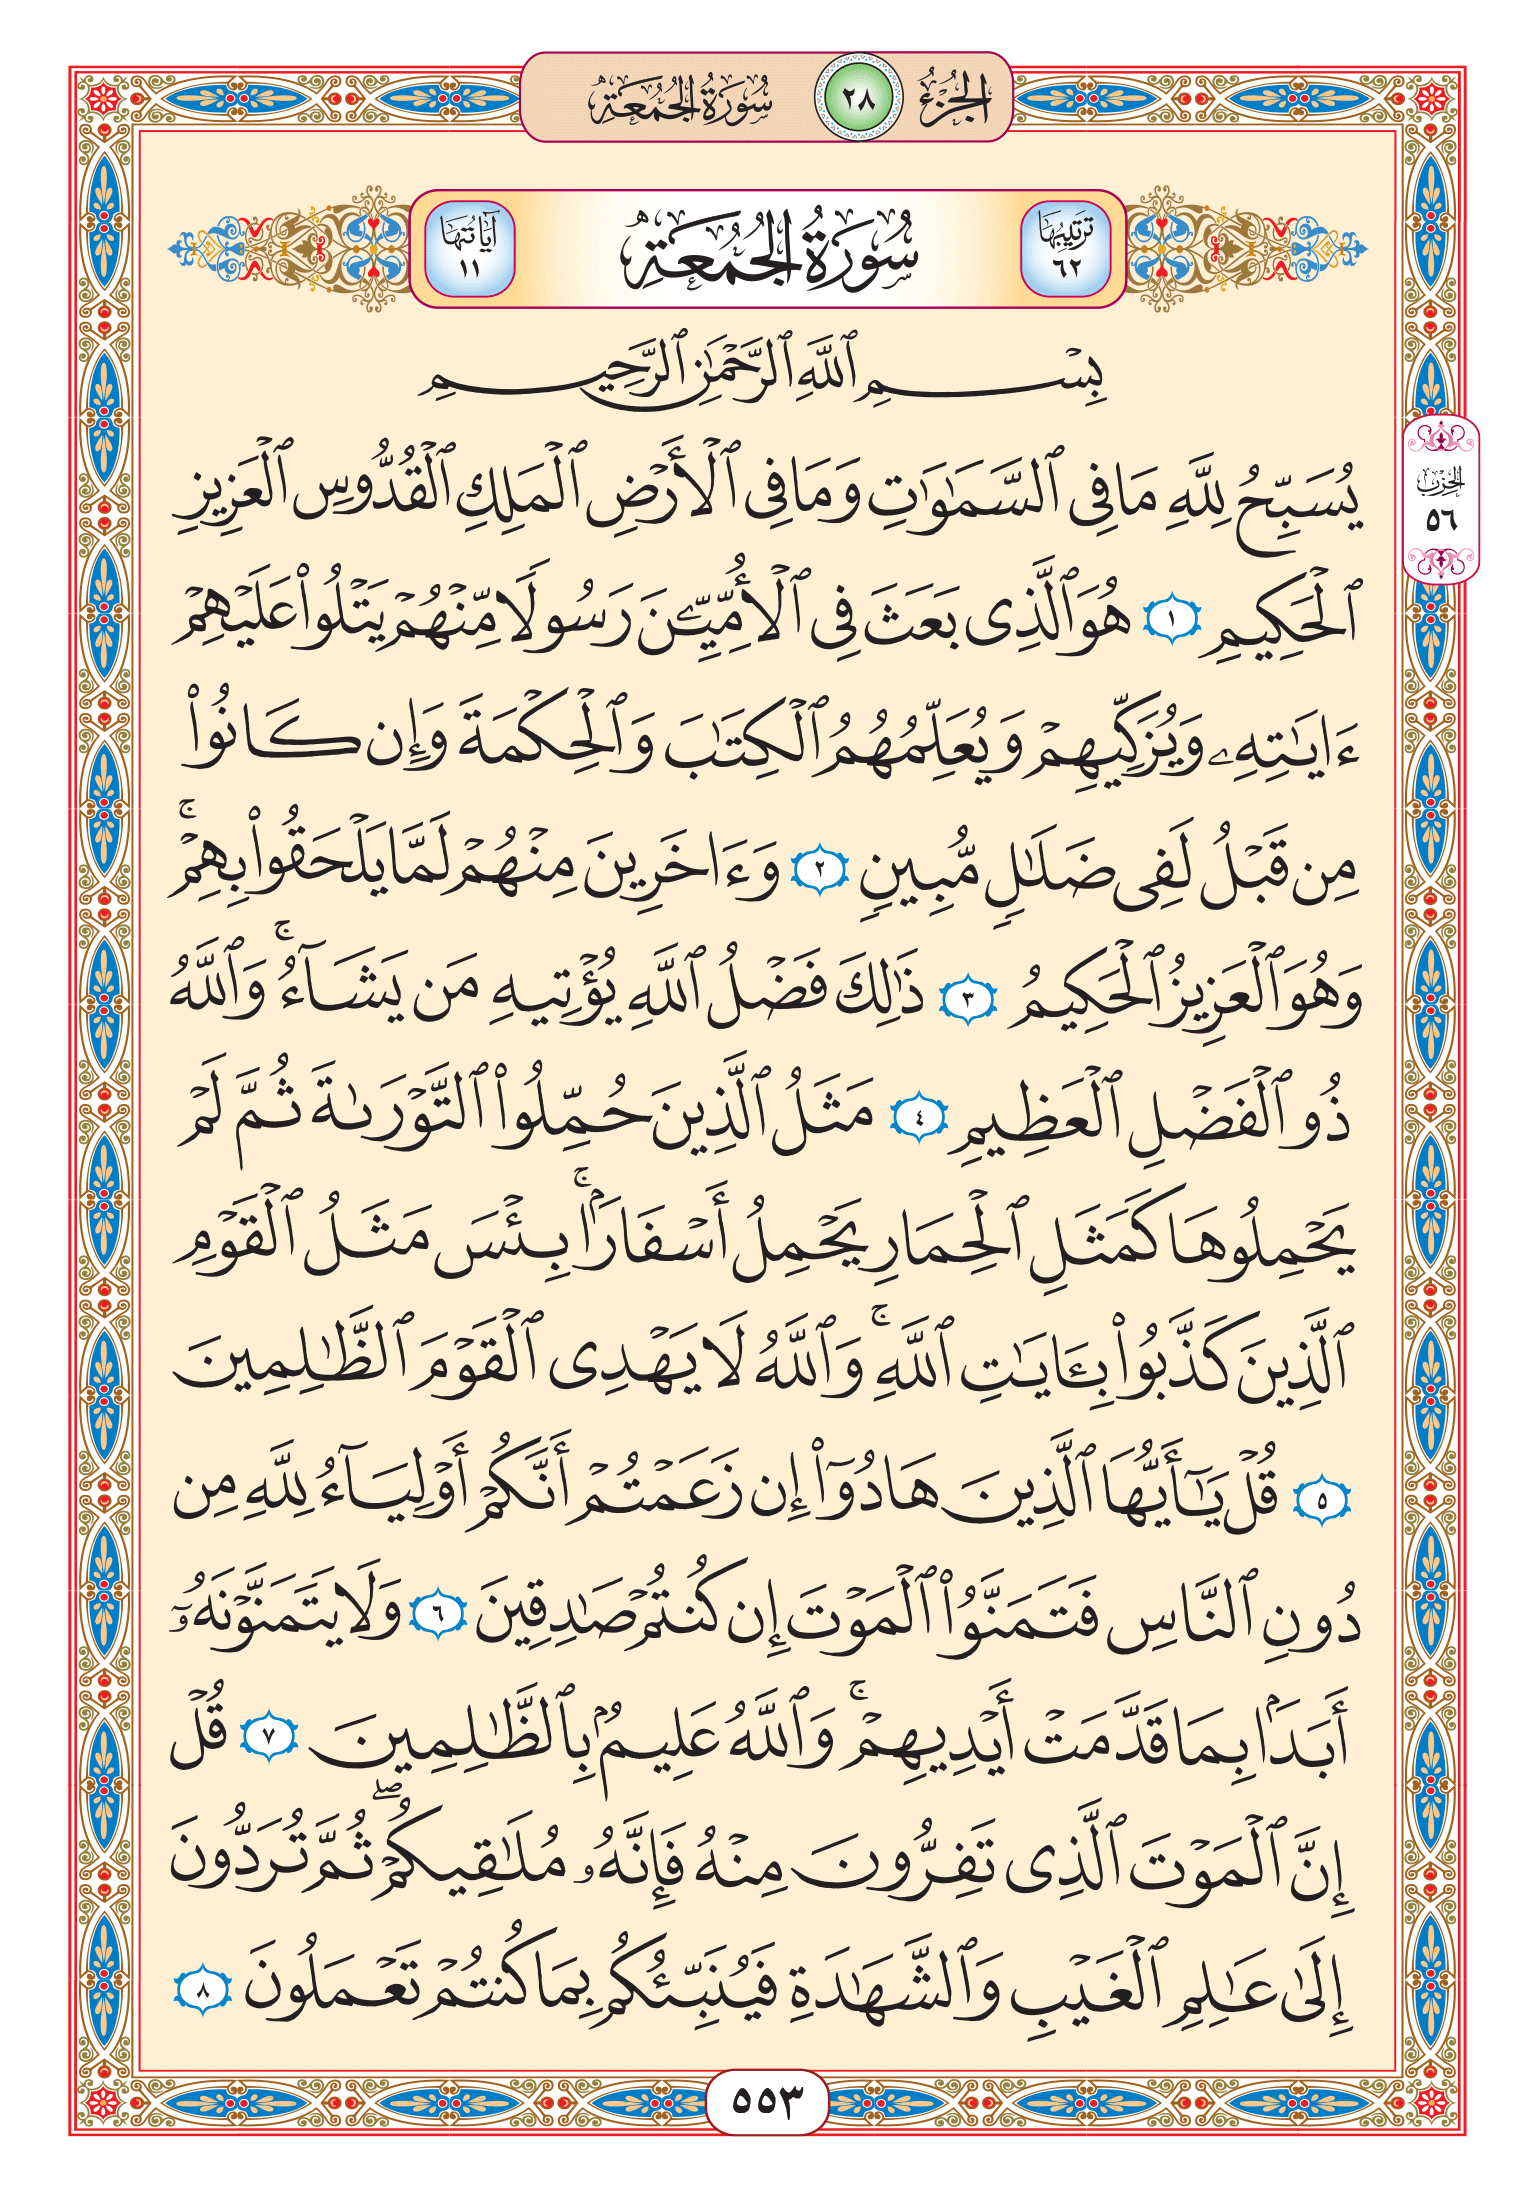 الجزء ٢٨ سورة الجمعة
ترتيبها ٦٢ سُورَةُ الجُمُعَةِ آياتها ١١
بِسْمِ ٱللَّهِ ٱلرَّحْمَٰنِ ٱلرَّحِيمِ
يُسَبِّحُ لِلَّهِ مَا فِى ٱلسَّمَٰوَٰتِ وَمَا فِى ٱلْأَرْضِ ٱلْمَلِكِ ٱلْقُدُّوسِ ٱلْعَزِيزِ
الحزب ٥٦
ٱلْحَكِيمِ ١ هُوَ ٱلَّذِى بَعَثَ فِى ٱلْأُمِّيِّۦنَ رَسُولًا مِّنْهُمْ يَتْلُوا۟ عَلَيْهِمْ
ءَايَٰتِهِۦ وَيُزَكِّيهِمْ وَيُعَلِّمُهُمُ ٱلْكِتَٰبَ وَٱلْحِكْمَةَ وَإِن كَانُوا۟
مِن قَبْلُ لَفِى ضَلَٰلٍ مُّبِينٍ ٢ وَءَاخَرِينَ مِنْهُمْ لَمَّا يَلْحَقُوا۟ بِهِمْ ۚ
وَهُوَ ٱلْعَزِيزُ ٱلْحَكِيمُ ٣ ذَٰلِكَ فَضْلُ ٱللَّهِ يُؤْتِيهِ مَن يَشَآءُ ۚ وَٱللَّهُ
ذُو ٱلْفَضْلِ ٱلْعَظِيمِ ٤ مَثَلُ ٱلَّذِينَ حُمِّلُوا۟ ٱلتَّوْرَىٰةَ ثُمَّ لَمْ
يَحْمِلُوهَا كَمَثَلِ ٱلْحِمَارِ يَحْمِلُ أَسْفَارًۢا ۚ بِئْسَ مَثَلُ ٱلْقَوْمِ
ٱلَّذِينَ كَذَّبُوا۟ بِـَٔايَٰتِ ٱللَّهِ ۚ وَٱللَّهُ لَا يَهْدِى ٱلْقَوْمَ ٱلظَّٰلِمِينَ
٥ قُلْ يَٰٓأَيُّهَا ٱلَّذِينَ هَادُوٓا۟ إِن زَعَمْتُمْ أَنَّكُمْ أَوْلِيَآءُ لِلَّهِ مِن
دُونِ ٱلنَّاسِ فَتَمَنَّوُا۟ ٱلْمَوْتَ إِن كُنتُمْ صَٰدِقِينَ ٦ وَلَا يَتَمَنَّوْنَهُۥٓ
أَبَدًۢا بِمَا قَدَّمَتْ أَيْدِيهِمْ ۚ وَٱللَّهُ عَلِيمٌۢ بِٱلظَّٰلِمِينَ ٧ قُلْ
إِنَّ ٱلْمَوْتَ ٱلَّذِى تَفِرُّونَ مِنْهُ فَإِنَّهُۥ مُلَٰقِيكُمْ ۖ ثُمَّ تُرَدُّونَ
إِلَىٰ عَٰلِمِ ٱلْغَيْبِ وَٱلشَّهَٰدَةِ فَيُنَبِّئُكُم بِمَا كُنتُمْ تَعْمَلُونَ ٨
٥٥٣